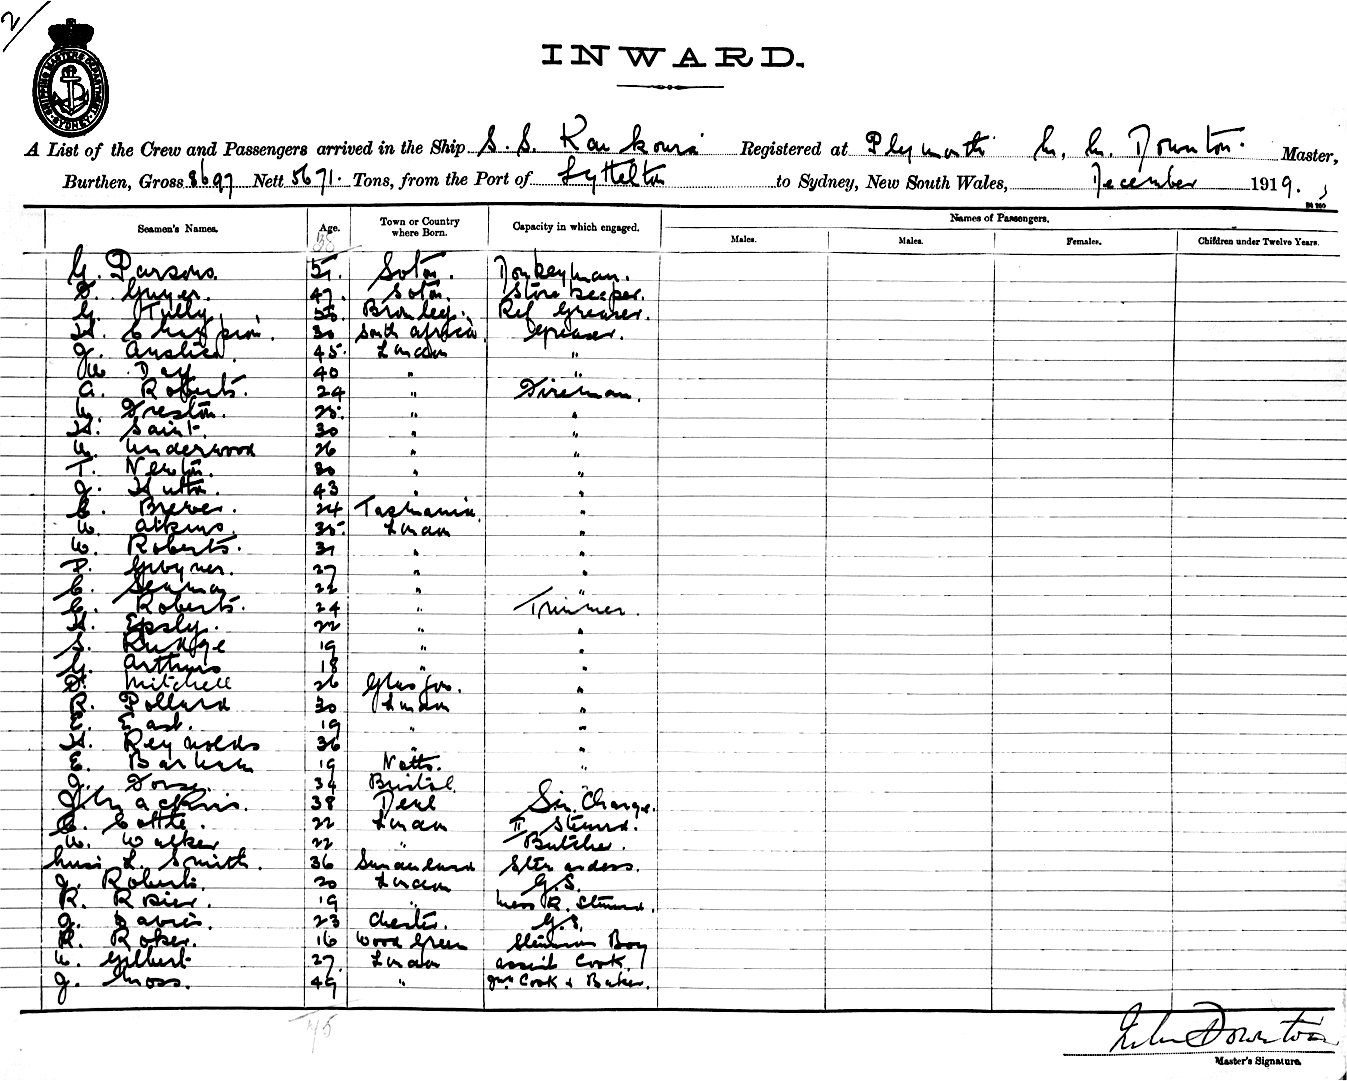 2
SHIPPING MASTERS DEPARTMENT SYDNEY
INWARD.
A List of the Crew and Passengers arrived in the Ship S. S. Registered at Plymouth Downton. Master,
Burthen, Gross 8697 Nett 5671. Tons, from the Port of Lyttelton to Sydney, New South Wales, December 1919.
Seamen's Names. Age. Town or Country where Born. Capacity in which engaged. Names of Passengers.
Males. Males. Females. Children under Twelve Years.
G. Parsons. Soton. Donkeyman.
Guyer. 47. Soton. Storekeeper.
G. Tully Bromley. Ref Greaser.
H. Champion. 30 South Africa. Greaser.
J. 45. London "
W. Day 40 "
A. Roberts. 24 " Fireman.
Preston. " "
H. Saint. 30 " "
W. Underwood 26 " "
T. Newton. 30 " "
J. Hutton. 43 " "
C. Brewer. 24 Tasmania. "
W. Atkins. 35. London "
W. Roberts. 31 " "
P. 27 " "
C. Seaman 22 " "
C. Roberts. 24 " Trimmer.
H. Epsly. 22 " "
S. Rudge 19 " "
G. Arthurs 18 " "
D. Mitchell 26 Glasgow. "
R. Pollard 30 London "
E. East. 19 " "
H. Reynolds 36 " "
E. Barham 19 Notts. "
J. 34 Bristol.
J. 38 Deal Sir. Charge.
C. Cottle. 22 London II Steward.
W. Walker 22 " Butcher.
L. Smith. 36 Sunderland Stewardess.
J. Roberts. 20 London G.S.
R. Rosier. 19 " Mess R. Steward.
J. Davies. 23 Chester. G.S.
R. Roker. 16 Wood Green Boy
W. Gilbert 27 London Assist Cook.
J. Moss. 49 " Cook & Baker.
Downton
Master's Signature.